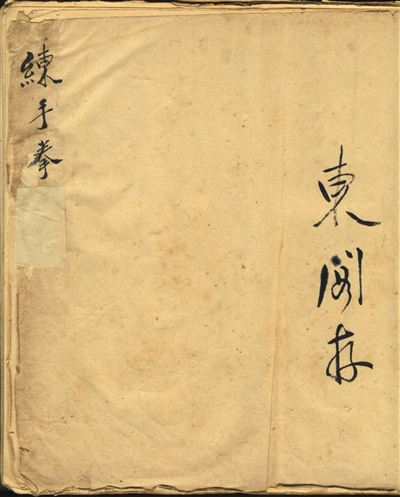 東閣存
練手拳